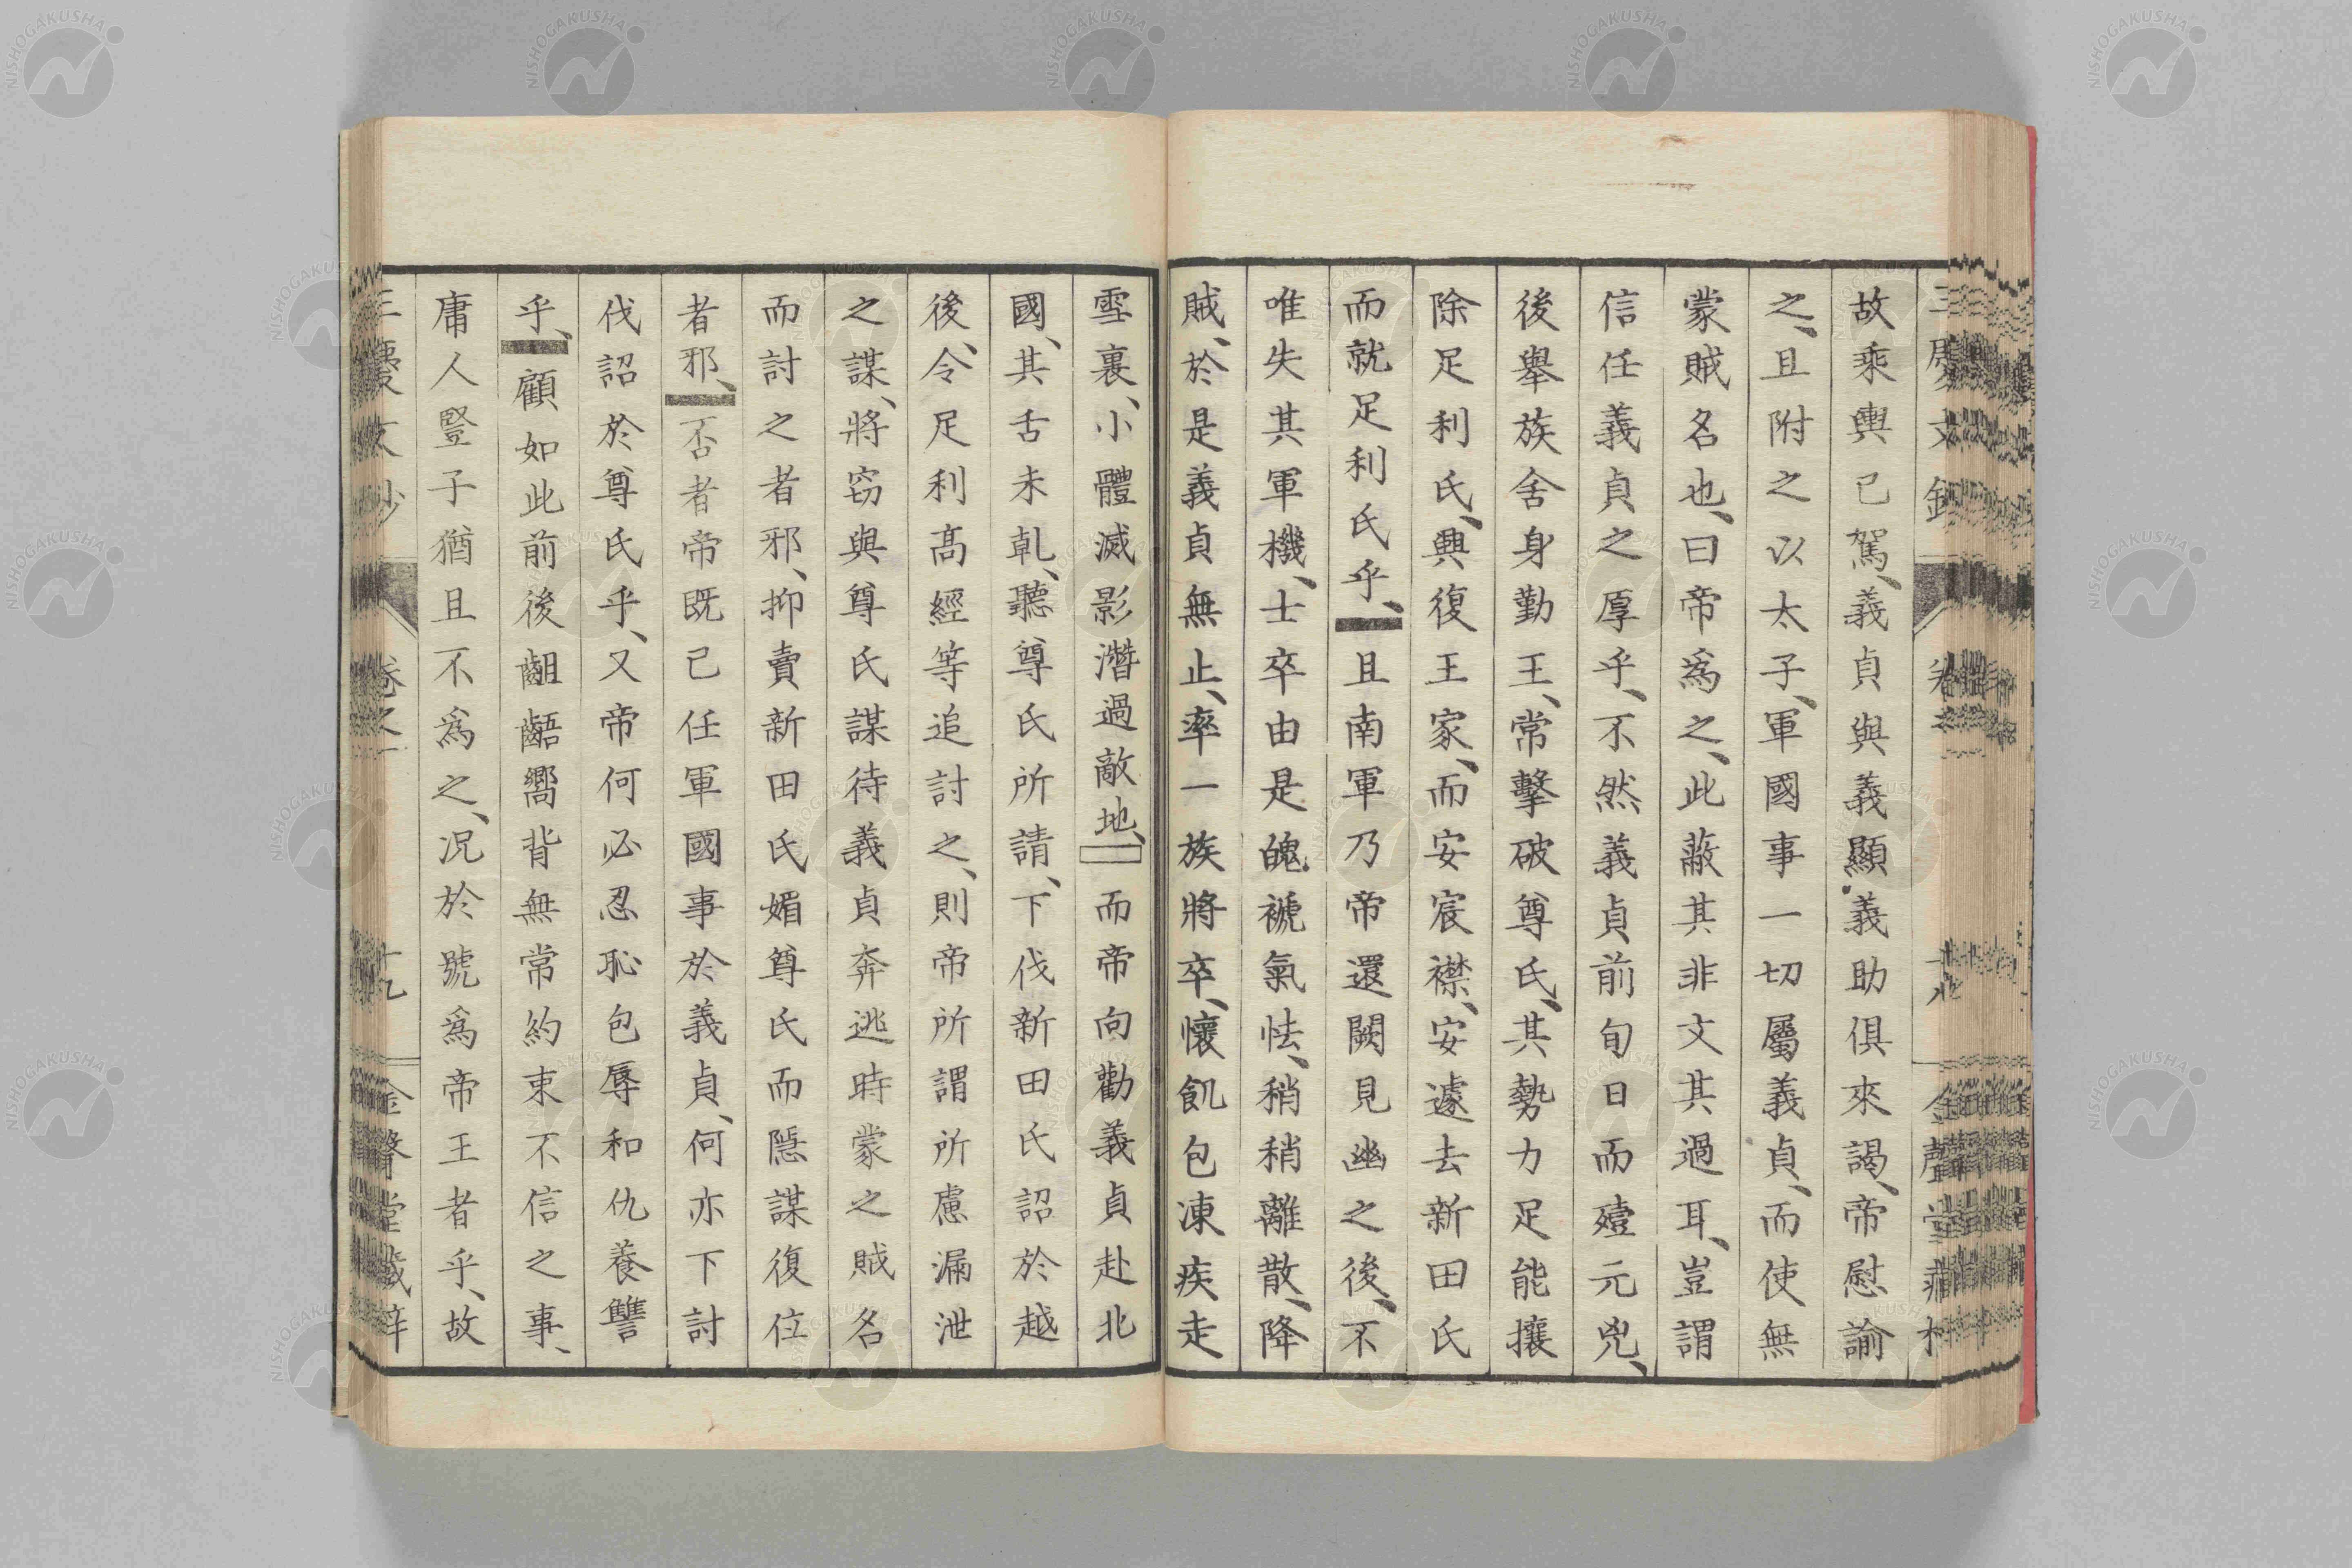 故乘輿已駕、義貞與義顯義助俱來謁、帝慰諭
之、且附之以太子、軍國事一切屬義貞、而使無
蒙賊名也、曰帝爲之、此蔽其非文其過耳、豈謂
信任義貞之厚乎、不然義貞前旬日而殪元兇、
後舉族舍身勤王、常擊破尊氏、其勢力足能攘
除足利氏、興復王家、而安宸襟、安遽去新田氏
而就足利氏乎、且南軍乃帝還闕見幽之後、不
唯失其軍機、士卒由是魄褫氣怯、稍稍離散、降
賊、於是義貞無止、率一族將卒、懷飢包凍疾走
雪裏、小體滅影潛過敵地、而帝向勸義貞赴北
國、其舌未乹、聽尊氏所請、下伐新田氏詔於越
後、令足利高經等追討之、則帝所謂所慮漏泄
之謀、將窃與尊氏謀待義貞奔逃時蒙之賊名
而討之者邪、抑賣新田氏媚尊氏而隱謀復位
者邪、否者帝既已任軍國事於義貞、何亦下討
伐詔於尊氏乎、又帝何必忍恥包辱和仇養讐
乎、顧如此前後齟齬嚮背無常約束不信之事、
庸人豎子猶且不爲之、况於號爲帝王者乎、故
卷之一
十九
NISHOGAKUSHA